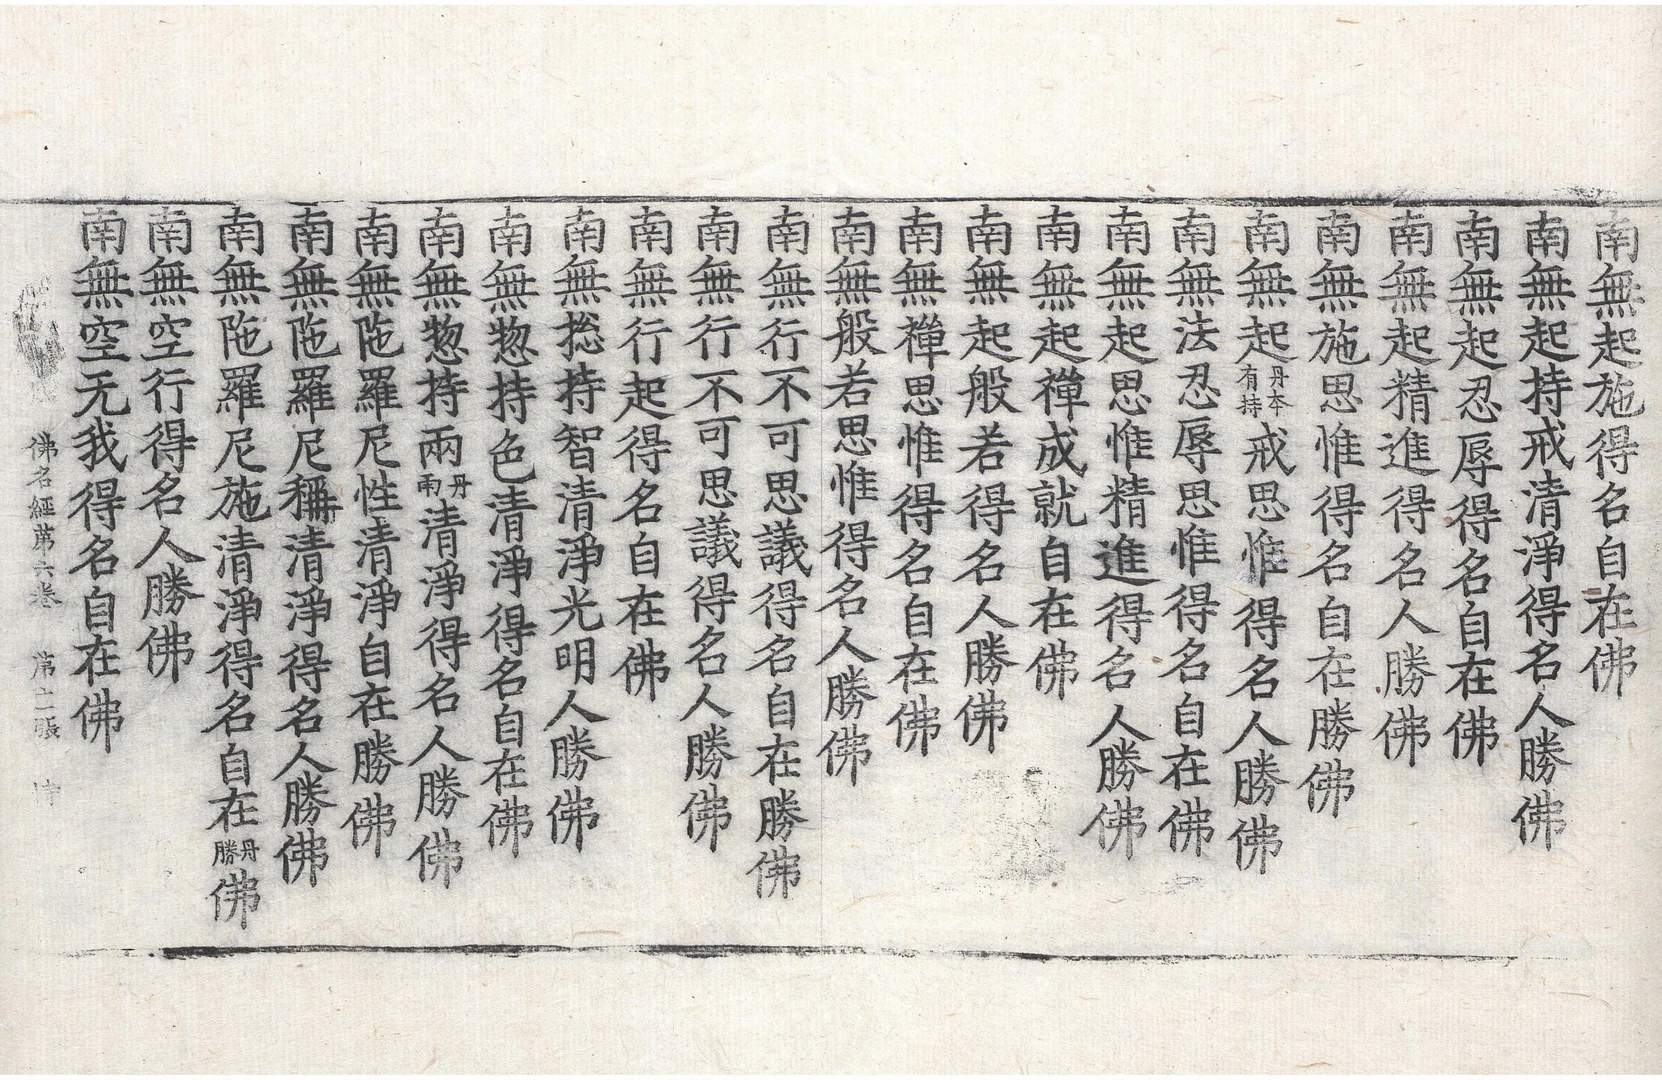 南無起施得名自在佛
南無起持戒清淨得名人勝佛
南無起忍辱得名自在佛
南無起精進得名人勝佛
南無施思惟得名自在勝佛
南無起丹本有持戒思惟得名人勝佛
南無法忍辱思惟得名自在佛
南無起思惟精進得名人勝佛
南無起禪成就自在佛
南無起般若得名人勝佛
南無禪思惟得名自在佛
南無般若思惟得名人勝佛
南無行不可思議得名自在勝佛
南無行不可思議得名人勝佛
南無行起得名自在佛
南無捴持智清淨光明人勝佛
南無惣持色清淨得名自在佛
南無惣持兩丹雨清淨得名人勝佛
南無陁羅尼性清淨自在勝佛
南無陁羅尼稱清淨得名人勝佛
南無陁羅尼施清淨得名自在丹勝佛
南無空行得名人勝佛
南無空无我得名自在佛
佛名經第六卷 第二張